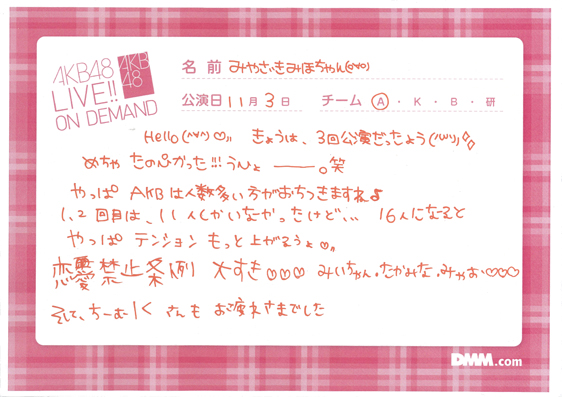 AKB48
LIVE!!
ON DEMAND
AKB
48
名前 みやざきみほちゃん(^o^)
公演日 11月3日 チーム Ⓐ・K・B・研
Hello(^v^)♡〃 きょうは、3回公演だったよう(^ω^)
めちゃ たのしかった!!! うひょ ――。笑
やっぱ AKBは人数多い方がおちつきますね♪
1、2回目は、11人しかいなかったけど、、、 16人になると
やっぱ テンション もっと上がるぅよ♡〃
恋愛禁止条例 大すき♡♡♡ みいちゃん。たかみな。みゃお♡♡♡
そして、ちーむKさんも おつかれさまでした
DMM.com